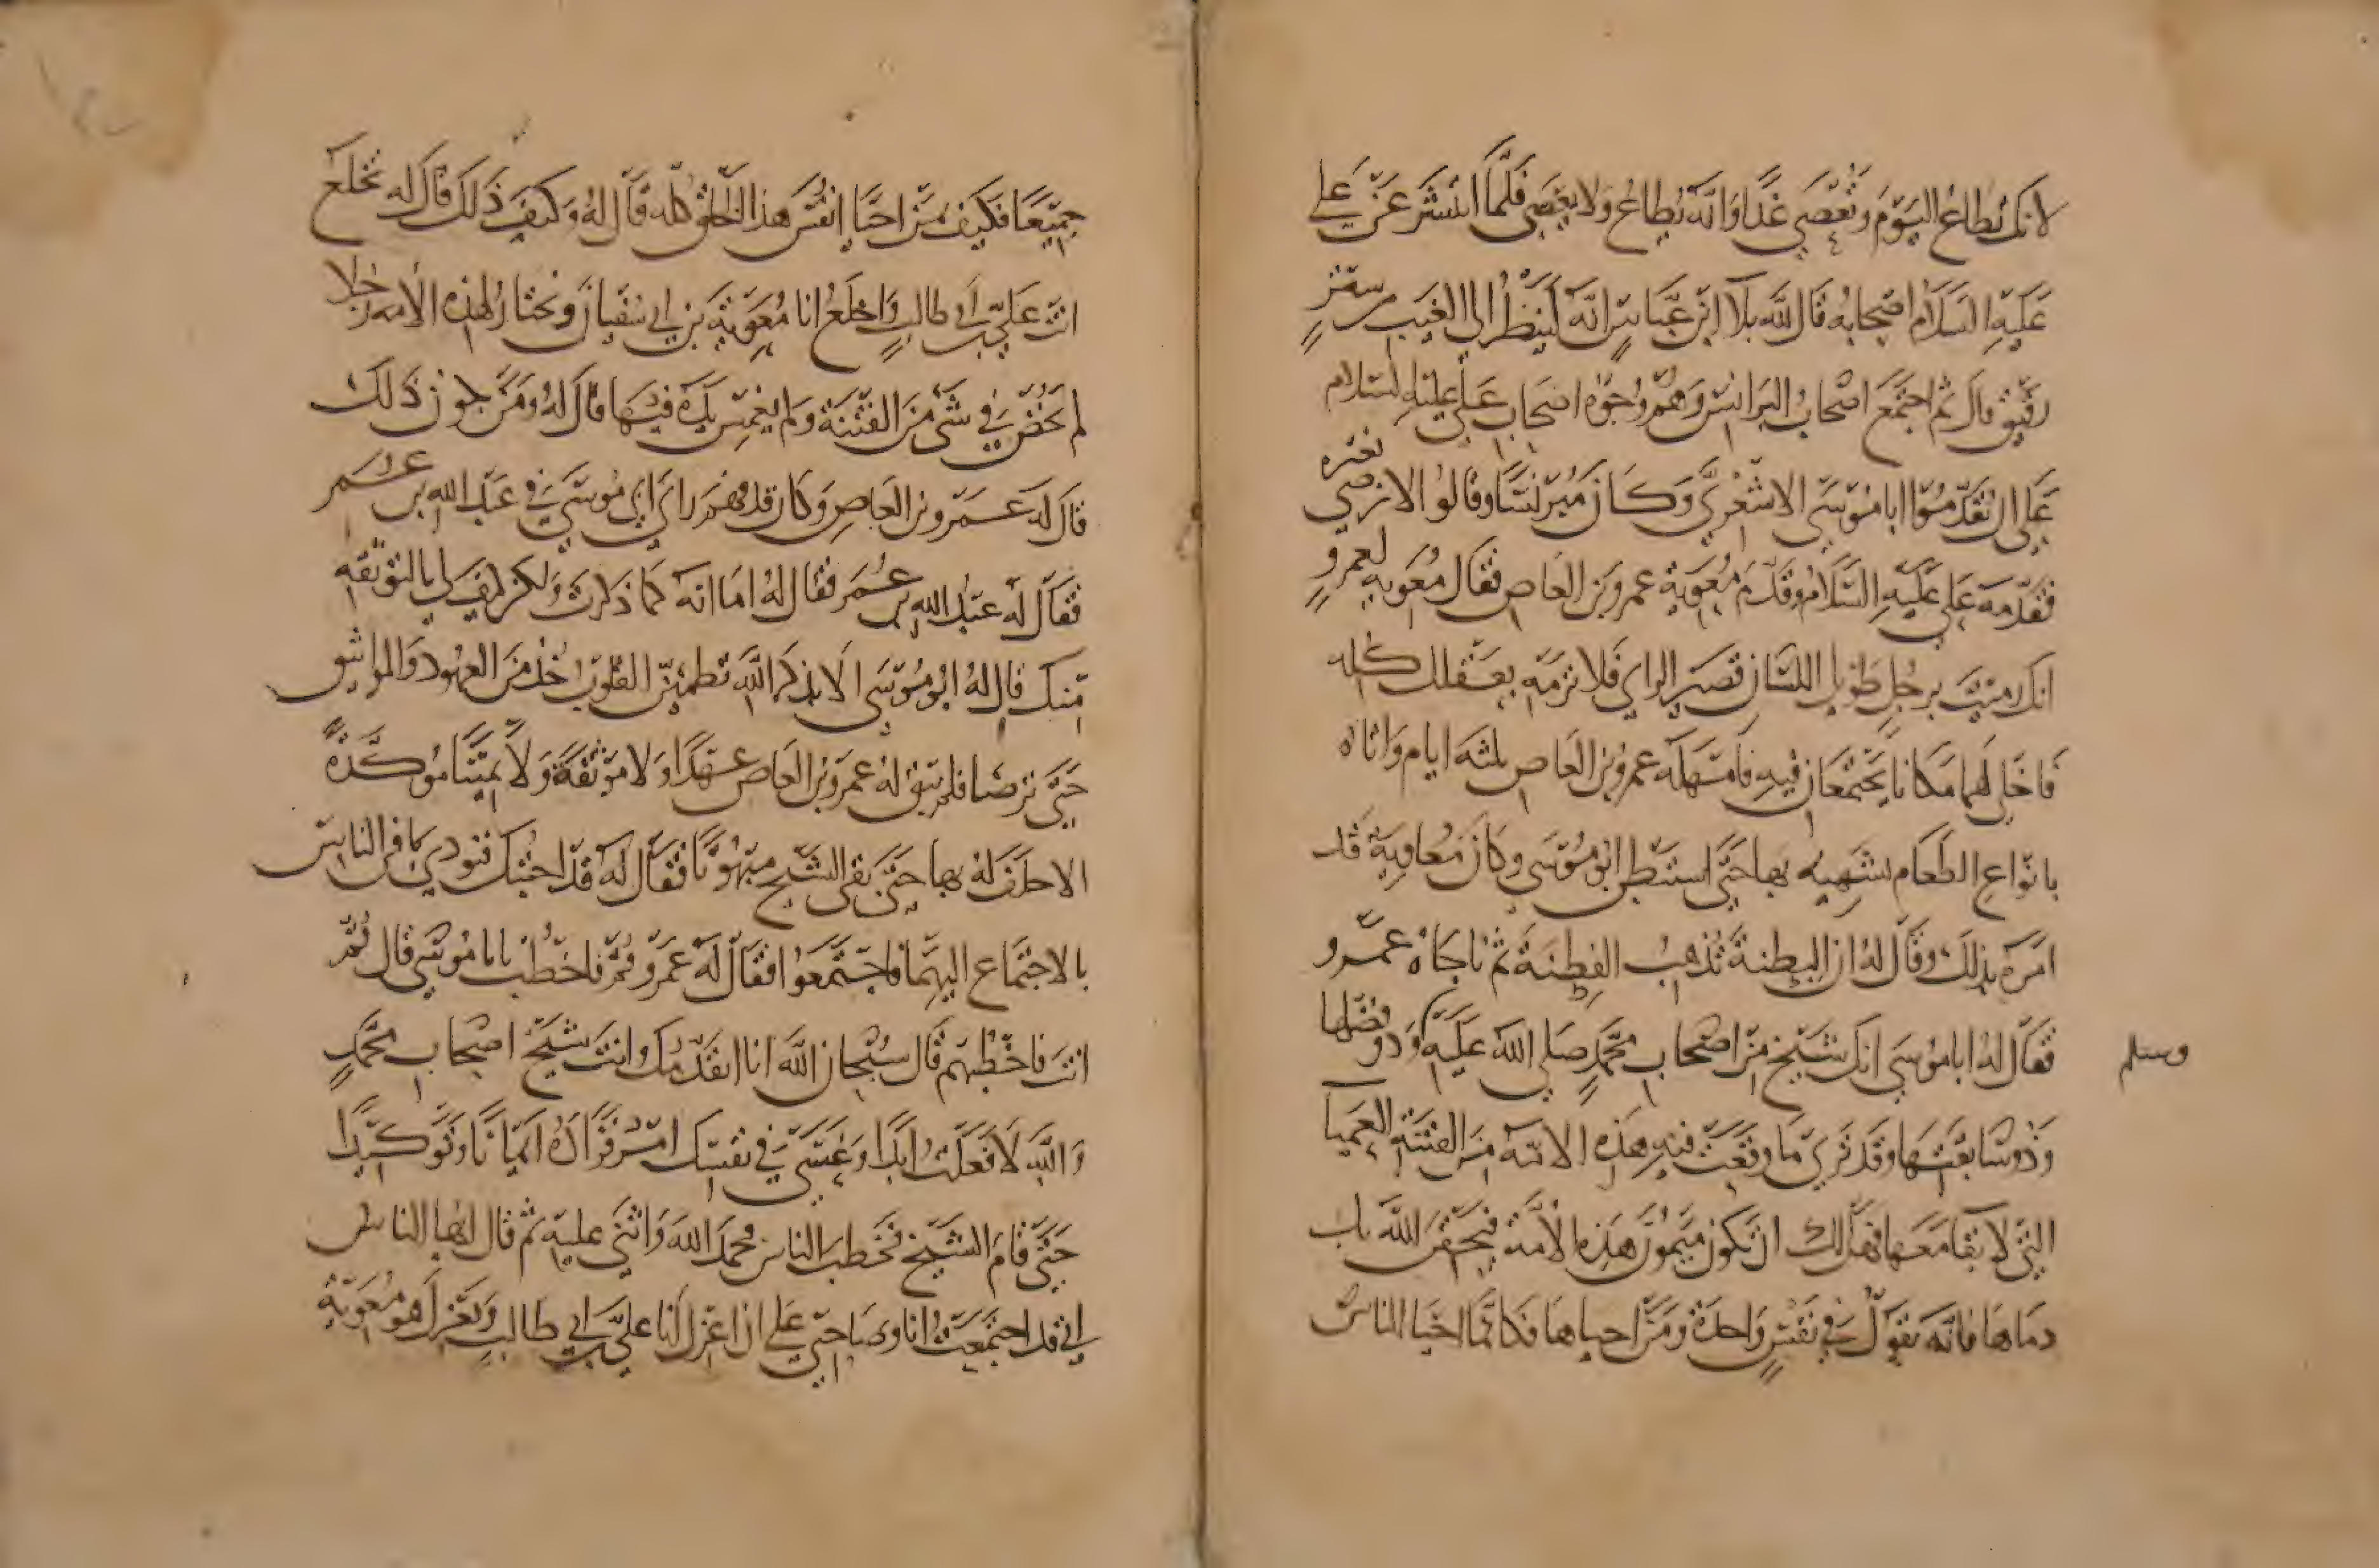 لانك تطاع اليوم وتعصي غدا وانه يطاع ولا يعصي فلما انتشر عن علي
عليه السلام اصحابه قال لله بلا ابن عباس انه لينظر الي الغيب من ستر
رقيق قال ثم اجتمع اصحاب البرانس وهم وجوه اصحاب علي عليه السلام
علي ان تقدموا ابا موسي الاشعري وكان مبرنسا وقالوا لا نرضي بغيره
فقدمه علي عليه السلام وقدم معوية عمرو بن العاص فقال معوية لعمرو
انك رميت برجل طويل اللسان قصير الراي فلا ترمه بعقلك كله
فاخلي لهما مكانا يجتمعان فيه فامهله عمرو بن العاص ثلثة ايام واتاه
بانواع الطعام يشهيه بها حتي استبطن ابو موسي وكان معاوية قد
امره بذلك وقال له ان البطنة تذهب الفطنة ثم ناجاه عمرو
فقال له ابا موسي انك شيخ من اصحاب محمد صلي الله عليه وذو فضلها
وسلم
وذو سابقتها وقد تري ما وقعت فيه هذه الامة من الفتنة العميا
التي لا بقا معها فهل لك ان تكون ميمون هذه الأمة فيحقن الله بك
دماها فانه يقول في نفس واحدة ومن احياها فكانما احيا الناس
جميعا فكيف من احيا انفس هذا الخلق كله قال له وكيف ذلك قال له تخلع
انت علي بن ابي طالب واخلع انا معوية بن ابي سفيان ونختار لهذه الامة رجلا
لم يخض في شي من الفتنة ولم يغمس يده فيها قال له ومن يكون ذلك
قال له عمرو بن العاص وكان قد فهم راي ابي موسي في عبد الله بن عمر
فقال له عبد الله بن عمر فقال له اما انه كما ذكرت ولكن كيف لي بالتوثقة
منك قال له ابو موسي الا بذكر الله تطمئن القلوب خذ من العهود والمواثيق
حتي ترضا فلم يبق له عمرو بن العاص عهدا ولا موثقة ولا يمينا موكدة
الا حلف له بها حتي بقي الشيخ مبهوتا فقال له قد اجبتك فنودي في الناس
بالاجتماع اليهما فاجتمعوا فقال له عمرو قم فاخطب يابا موسي قال قم
انت فاخطبهم قال سبحان الله انا اتقدمك وانت شيخ اصحاب محمد
والله لا فعلت ابدا وعسي في نفسك امر فزاده ايمانا وتوكيدا
حتي قام الشيخ فخطب الناس فحمد الله واثني عليه ثم قال ايها الناس
اني قد اجتمعت انا وصاحبي علي ان اعزل انا علي بن ابي طالب ويعزل هو معوية